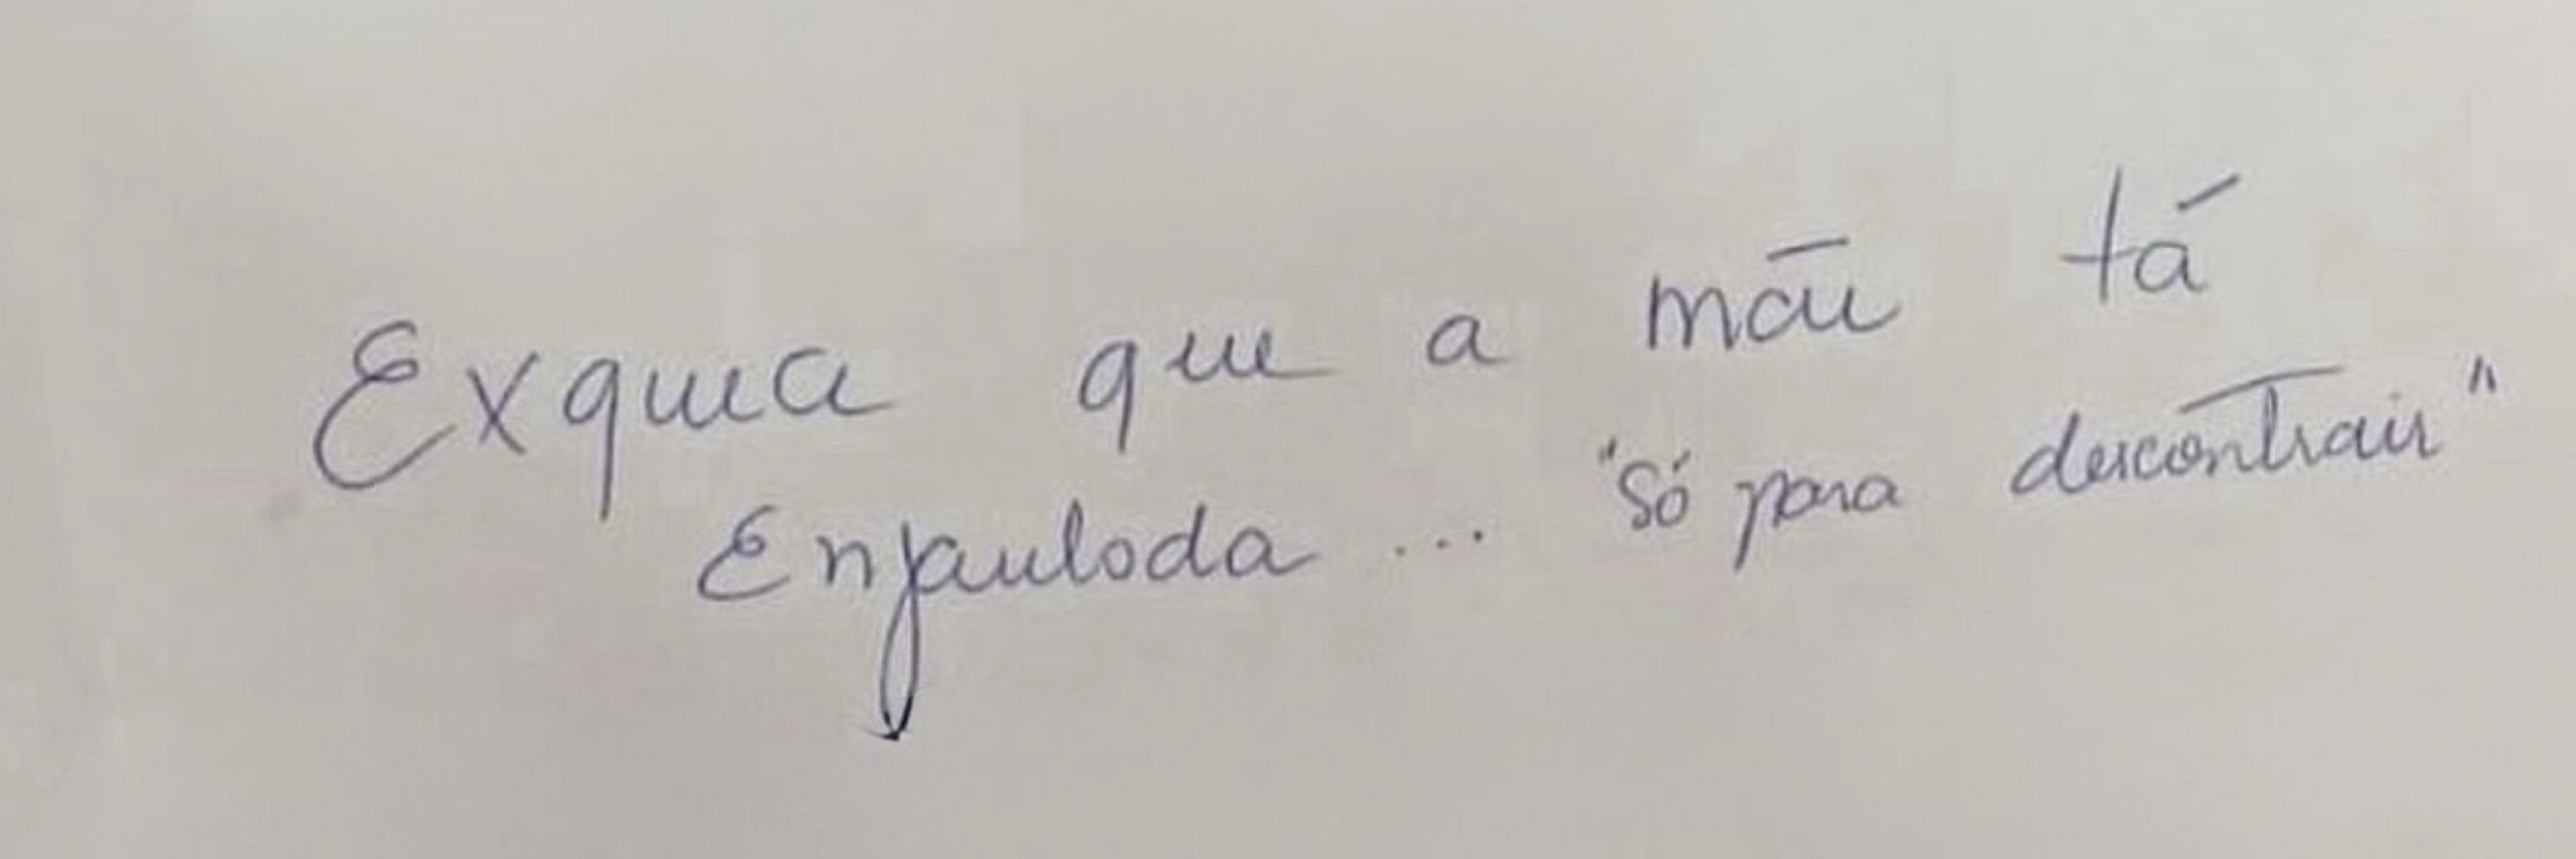 Exquea que a mãe tá
Enjaulada ... "só para descontrair"